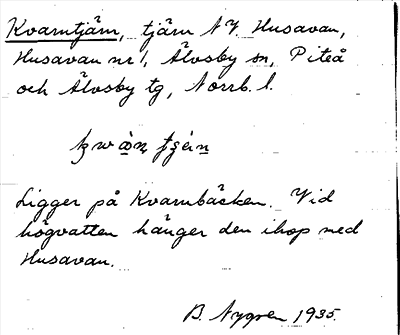 Kvarntjärn, tjärn NV. Husavan,
Husavan nr 1, Älvsby sn, Piteå
och Älvsby tg, Norrb. l.
Ligger på Kvarnbäcken. Vid
högvatten hänger den ihop med
Husavan.
B. Nygren 1935.